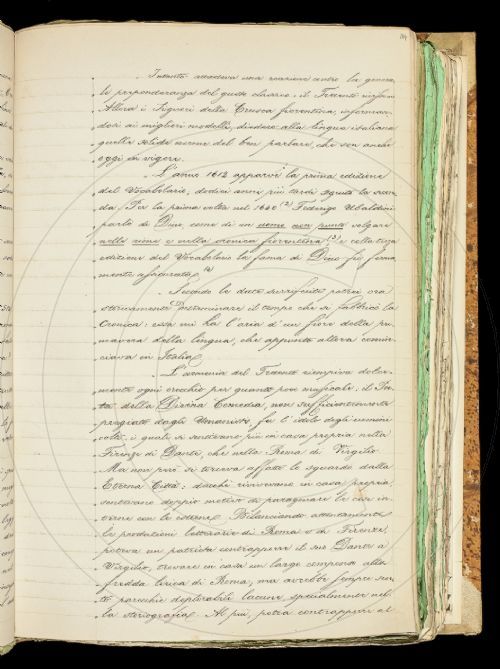 Intanto accadeva una reazione contro la genera-
le preponderanza del gusto classico, il Trecento
Allora i Signori della Crusca fiorentina, informan-
dosi ai migliori modelli, diedero alla lingua italiana
quelle solide norme del ben parlare, che son anche
oggi in vigore.
L'anno 1612 apparve la prima edizione
del Vocabolario, dodici anni più tardi la secon-
da. Per la prima volta nel 1640 (2) Federigo Ubaldini
parlò di Dino come di un uomo non punto volgare
nelle rime e nella cronica fiorentina (3) e colla terza
edizione del Vocabolario la fama di Dino fu ferma-
mente
Secondo le date surriferite potrei ora
determinare il tempo che si fabbricò la
Cronica: essa mi ha l'aria d'un fiore della pri-
mavera della lingua, che appunto allora comin-
ciava in Italia.
L'armonia del Trecento riempiva dolce-
mente ogni orecchio per quanto poco musicale, il
della Divina Comedia, non sufficientemente
pregiato dagli Umanisti, fu l'idolo degli uomini
colti, i quali si sentivano più in casa propria nella
Firenze di Dante, che nella Roma di Virgilio.
Ma non però si torceva affatto lo sguardo dalla
Eterna Città: dacchè rivivevano in casa propria
sentivano doppio motivo di paragonare le cose in-
terne con le esterne. Bilanciando attentamente
le produzioni letterarie di Roma e di Firenze,
poteva un patriota contrapporre il suo Dante a
Virgilio, trovare in casa un largo compenso alla
fredda lirica di Roma, ma avrebbe sempre sen-
to parecchie deplorabili lacune, specialmente nel-
la storiografia. Al più, potea contrapporre al